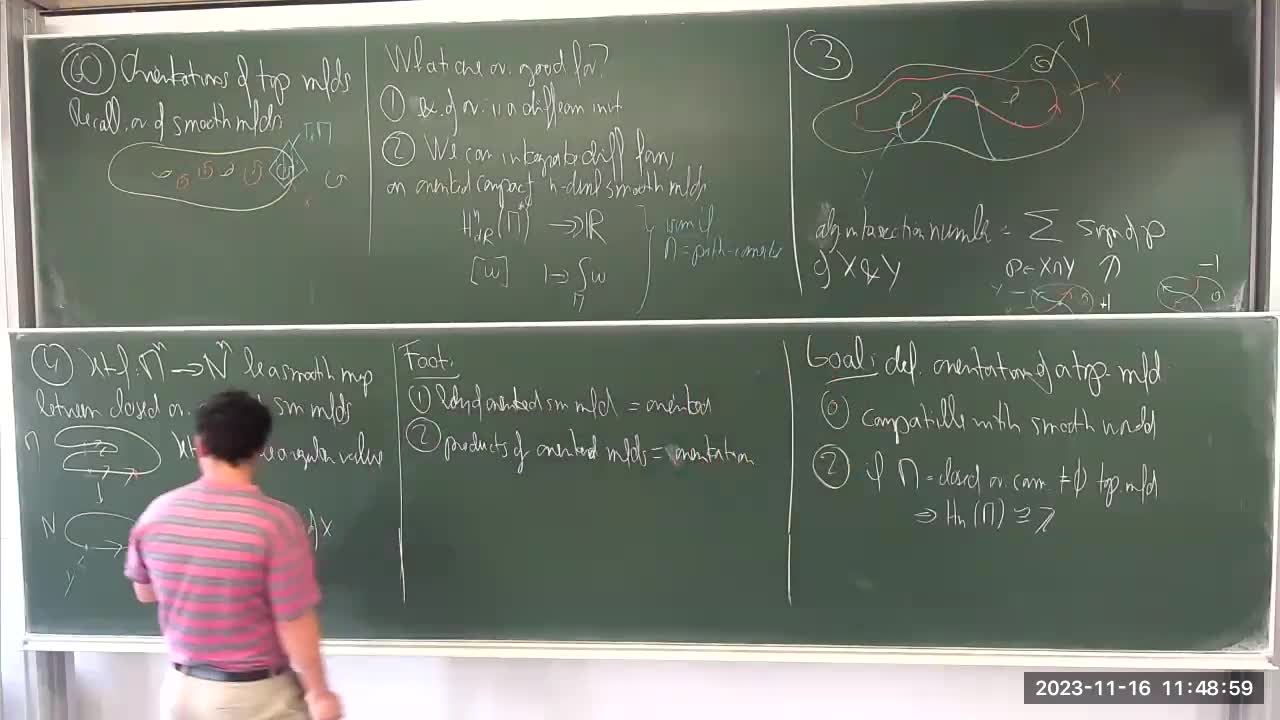 60 Orientations of top mfds
Recall: or. of smooth mfds
What are or. good for?
① ex. of or. is a diffeom inv.
② We can integrate diff forms
on oriented compact n-dim'l smooth mfds
Hⁿ_dR(M) →→ ℝ
[ω] ↦ ∫_M ω
isom if
M = path-connected
③
M
X
Y
alg intersection number = ∑ sign of p
of X & Y
p∈X∩Y
+1
-1
④ let f: Mⁿ → Nⁿ be a smooth map
between closed or. sm mfds
M
be a regular value
N
of x
y
Fact:
① bdry of oriented sm mfd = oriented
② products of oriented mfds = orientation
Goal: def. orientation of a top. mfd
⓪ compatible with smooth world
② if M = closed or. conn. ≠ ∅ top. mfd
⇒ Hn(M) ≅ ℤ
2023-11-16 11:48:59